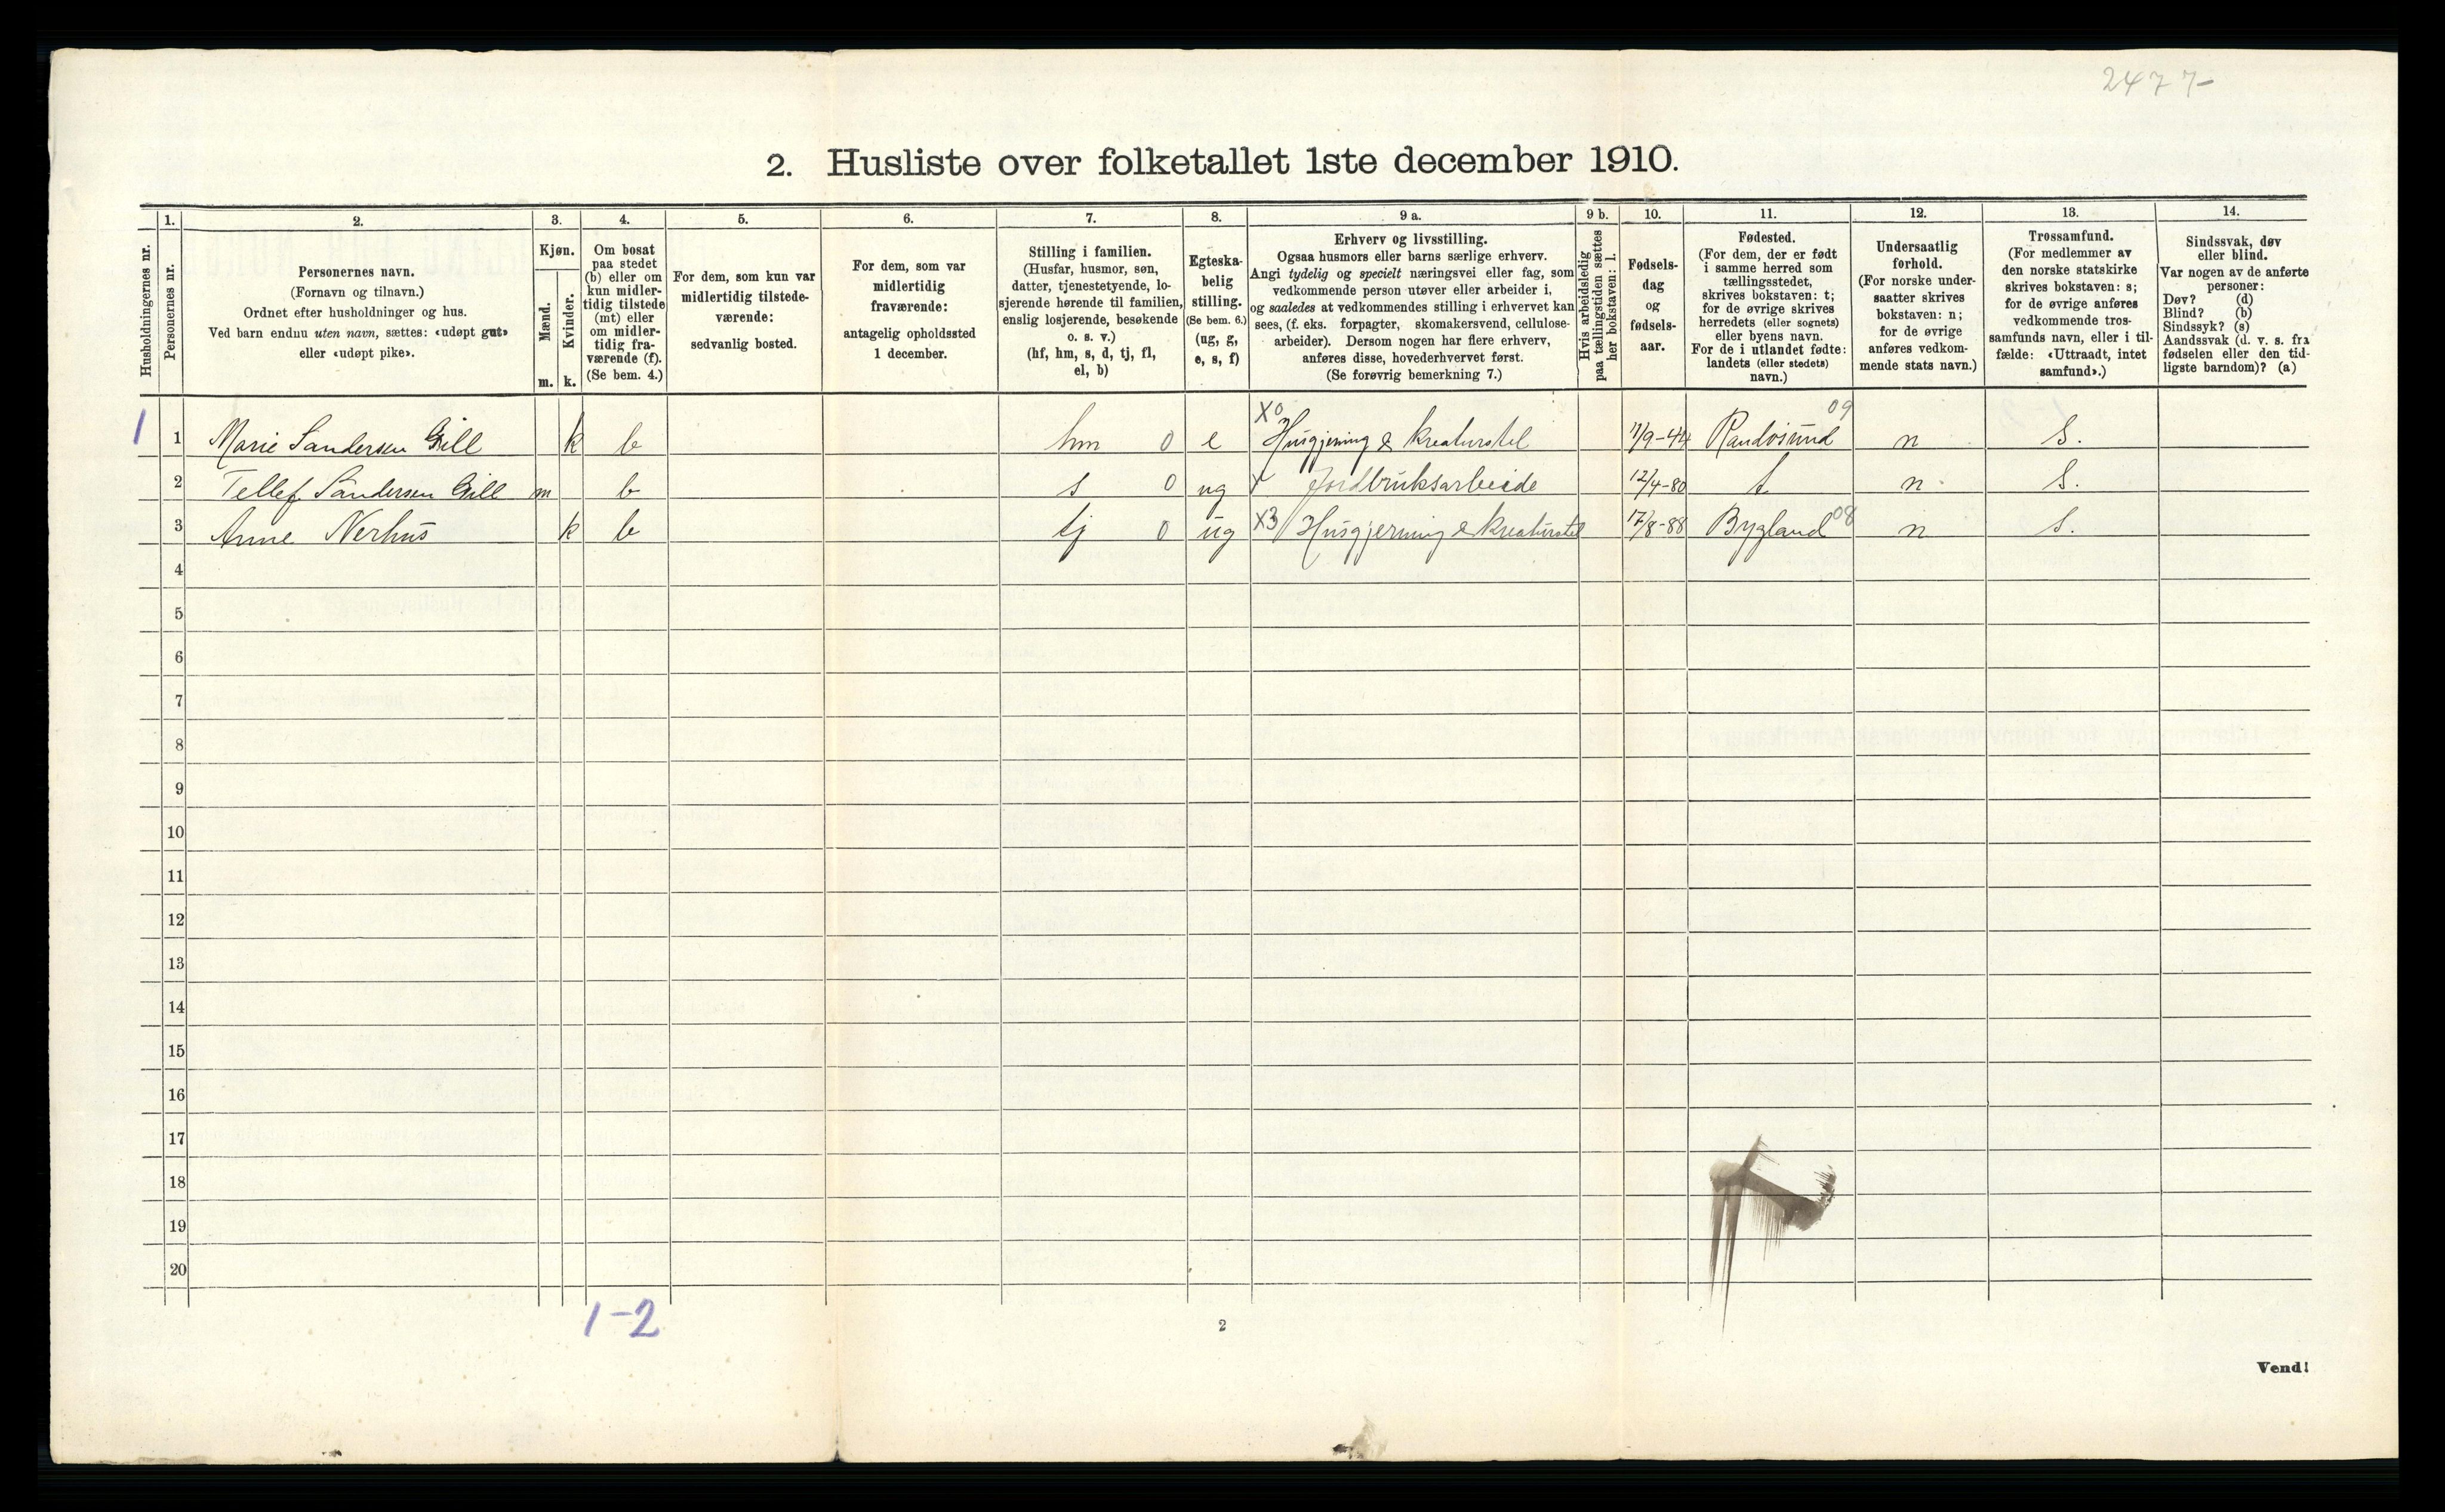 2477-
2. Husliste over folketallet 1ste december 1910.
Husholdningernes nr.
1. Personernes nr.
2. Personernes navn.
(Fornavn og tilnavn.)
Ordnet efter husholdninger og hus.
Ved barn endnu uten navn, sættes: «udøpt gut»
eller «udøpt pike».
3. Kjøn.
Mænd. m.
Kvinder. k.
4. Om bosat
paa stedet
(b) eller om
kun midler-
tidig tilstede
(mt) eller
om midler-
tidig fra-
værende (f).
(Se bem. 4.)
5. For dem, som kun var
midlertidig tilstede-
værende:
sedvanlig bosted.
6. For dem, som var
midlertidig
fraværende:
antagelig opholdssted
1 december.
7. Stilling i familien.
(Husfar, husmor, søn,
datter, tjenestetyende, lo-
sjerende hørende til familien,
enslig losjerende, besøkende
o. s. v.)
(hf, hm, s, d, tj, fl,
el, b)
8. Egteska-
belig
stilling.
(Se bem. 6.)
(ug, g,
e, s, f)
9 a. Erhverv og livsstilling.
Ogsaa husmors eller barns særlige erhverv.
Angi tydelig og specielt næringsvei eller fag, som
vedkommende person utøver eller arbeider i,
og saaledes at vedkommendes stilling i erhvervet kan
sees, (f. eks. forpagter, skomakersvend, cellulose-
arbeider). Dersom nogen har flere erhverv,
anføres disse, hovederhvervet først.
(Se forøvrig bemerkning 7.)
9 b. Hvis arbeidsledig
paa tællingstiden sættes
her bokstaven: l.
10. Fødsels-
dag
og
fødsels-
aar.
11. Fødested.
(For dem, der er født
i samme herred som
tællingsstedet,
skrives bokstaven: t;
for de øvrige skrives
herredets (eller sognets)
eller byens navn.
For de i utlandet fødte:
landets (eller stedets)
navn.)
12. Undersaatlig
forhold.
(For norske under-
saatter skrives
bokstaven: n;
for de øvrige
anføres vedkom-
mende stats navn.)
13. Trossamfund.
(For medlemmer av
den norske statskirke
skrives bokstaven: s;
for de øvrige anføres
vedkommende tros-
samfunds navn, eller i til-
fælde: «Uttraadt, intet
samfund».)
14. Sindssvak, døv
eller blind.
Var nogen av de anførte
personer:
Døv? (d)
Blind? (b)
Sindssyk? (s)
Aandssvak (d. v. s. fra
fødselen eller den tid-
ligste barndom)? (a)
1 1 Marie Sandersen Gill k b hm 0 e X0 Husgjerning & kreaturstel 11/9-44 Randösund 09 n S.
2 Tellef Sandersen Gill m b s 0 ug X Jordbruksarbeide 12/4-80 t n S.
3 Anne Nerhus k b tj 0 ug X3 Husgjerning & kreaturstel 17/8-88 Bygland 08 n S.
4
5
6
7
8
9
10
11
12
13
14
15
16
17
18
19
20
1-2
2
Vend!